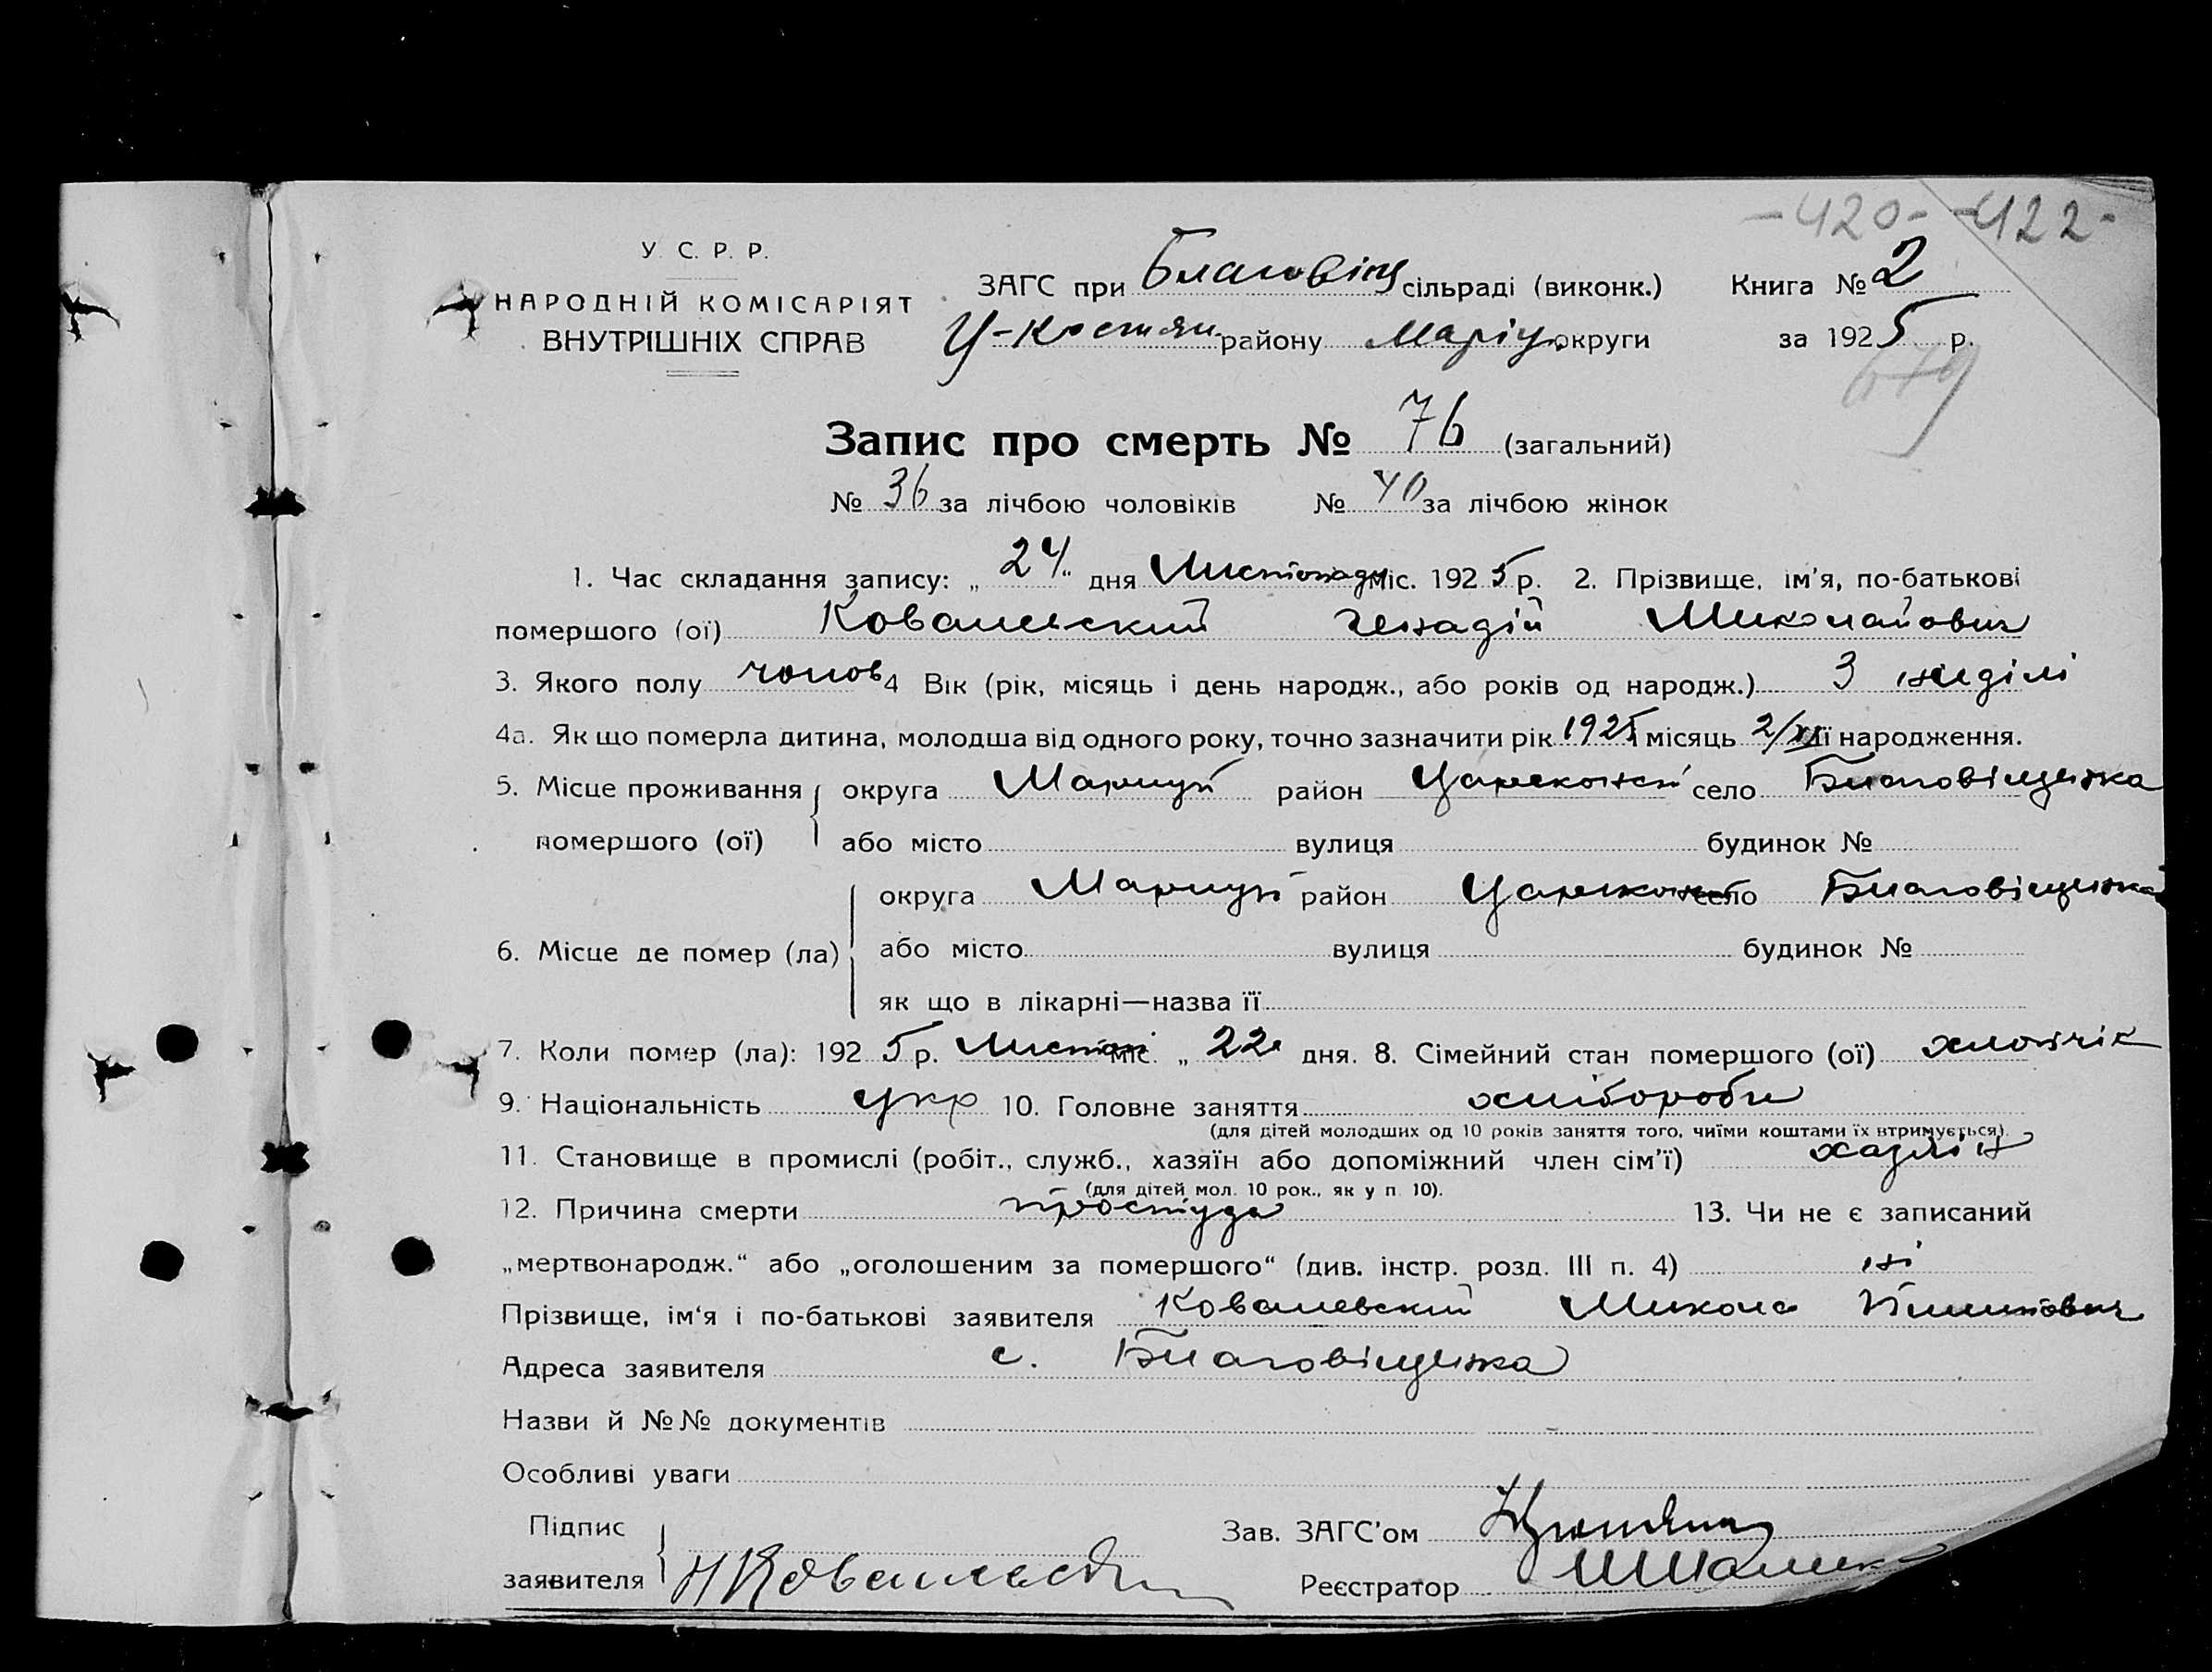 -420- -422-
У. С. Р. Р.
НАРОДНІЙ КОМІСАРІЯТ
ВНУТРІШНІХ СПРАВ
ЗАГС при Благовіщ сільраді (виконк.) Книга № 2
Ц-Костян. району Маріуп. округи за 1925 р.
679
Запис про смерть № 76 (загальний)
№ 36 за лічбою чоловіків № 40 за лічбою жінок
1. Час складання запису: „ 24 “ дня Листопаду міс. 1925 р. 2. Прізвище, ім'я, по-батькові
помершого (ої) Ковалевский Генадій Миколайович
3. Якого полу чолов 4 Вік (рік, місяць і день народж., або років од народж.) 3 неділі
4а. Як що померла дитина, молодша від одного року, точно зазначити рік 1925 місяць 2/XI її народження.
5. Місце проживання помершого (ої) округа Мариуп район Царекон село Благовіщенка
або місто вулиця будинок №
6. Місце де помер (ла) округа Мариуп район Царекон село Благовіщенка
або місто вулиця будинок №
як що в лікарні—назва її
7. Коли помер (ла): 1925 р. Листоп міс. „ 22 “ дня. 8. Сімейний стан помершого (ої) хлопчік
9. Національність укр 10. Головне заняття хлібороби
(для дітей молодших од 10 років заняття того, чиїми коштами їх втримується).
11. Становище в промислі (робіт., служб., хазяїн або допоміжний член сім'ї) хазяін
(для дітей мол. 10 рок., як у п. 10).
12. Причина смерти простуда 13. Чи не є записаний
„мертвонародж.“ або „оголошеним за помершого“ (див. інстр. розд. III п. 4) ні
Прізвище, ім'я і по-батькові заявителя Ковалевский Микола
Адреса заявителя с. Благовіщенка
Назви й №№ документів
Особливі уваги
Підпис заявителя Н Ковалевск
Зав. ЗАГС'ом
Реєстратор